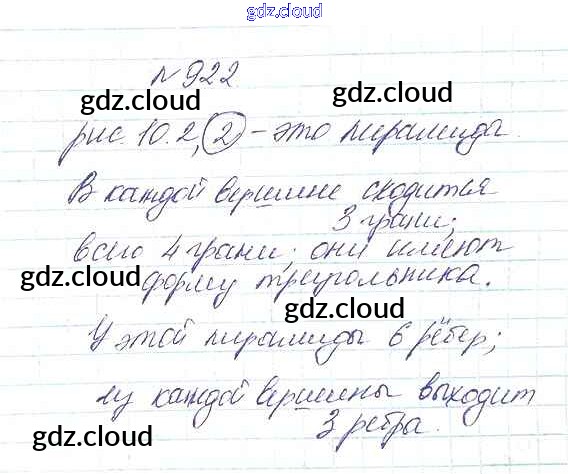 gdz.cloud
№922
gdz.cloud gdz.cloud
рис. 10.2, 2 - это пирамида.
В каждой вершине сходится
3 грани;
всего 4 грани; они имеют
gdz.cloud
форму треугольника.
gdz.cloud
У этой пирамиды 6 рёбер;
из каждой вершины выходит
3 ребра.
gdz.cloud gdz.cloud